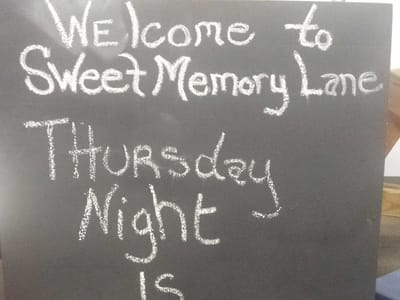 WElcome to
Sweet Memory Lane
THURSday
Night
IS